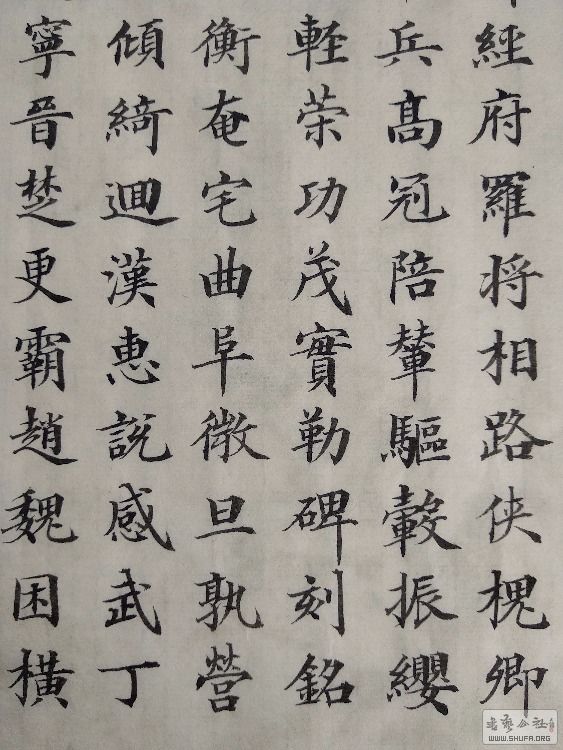 經府羅将相路侠槐卿
兵髙冠陪輦驅轂振纓
軽荣功茂實勒碑刻銘
衡奄宅曲阜微旦孰營
傾綺迴漢惠説感武丁
寧晋楚更霸趙魏困横
WWW.SHUFA.ORG